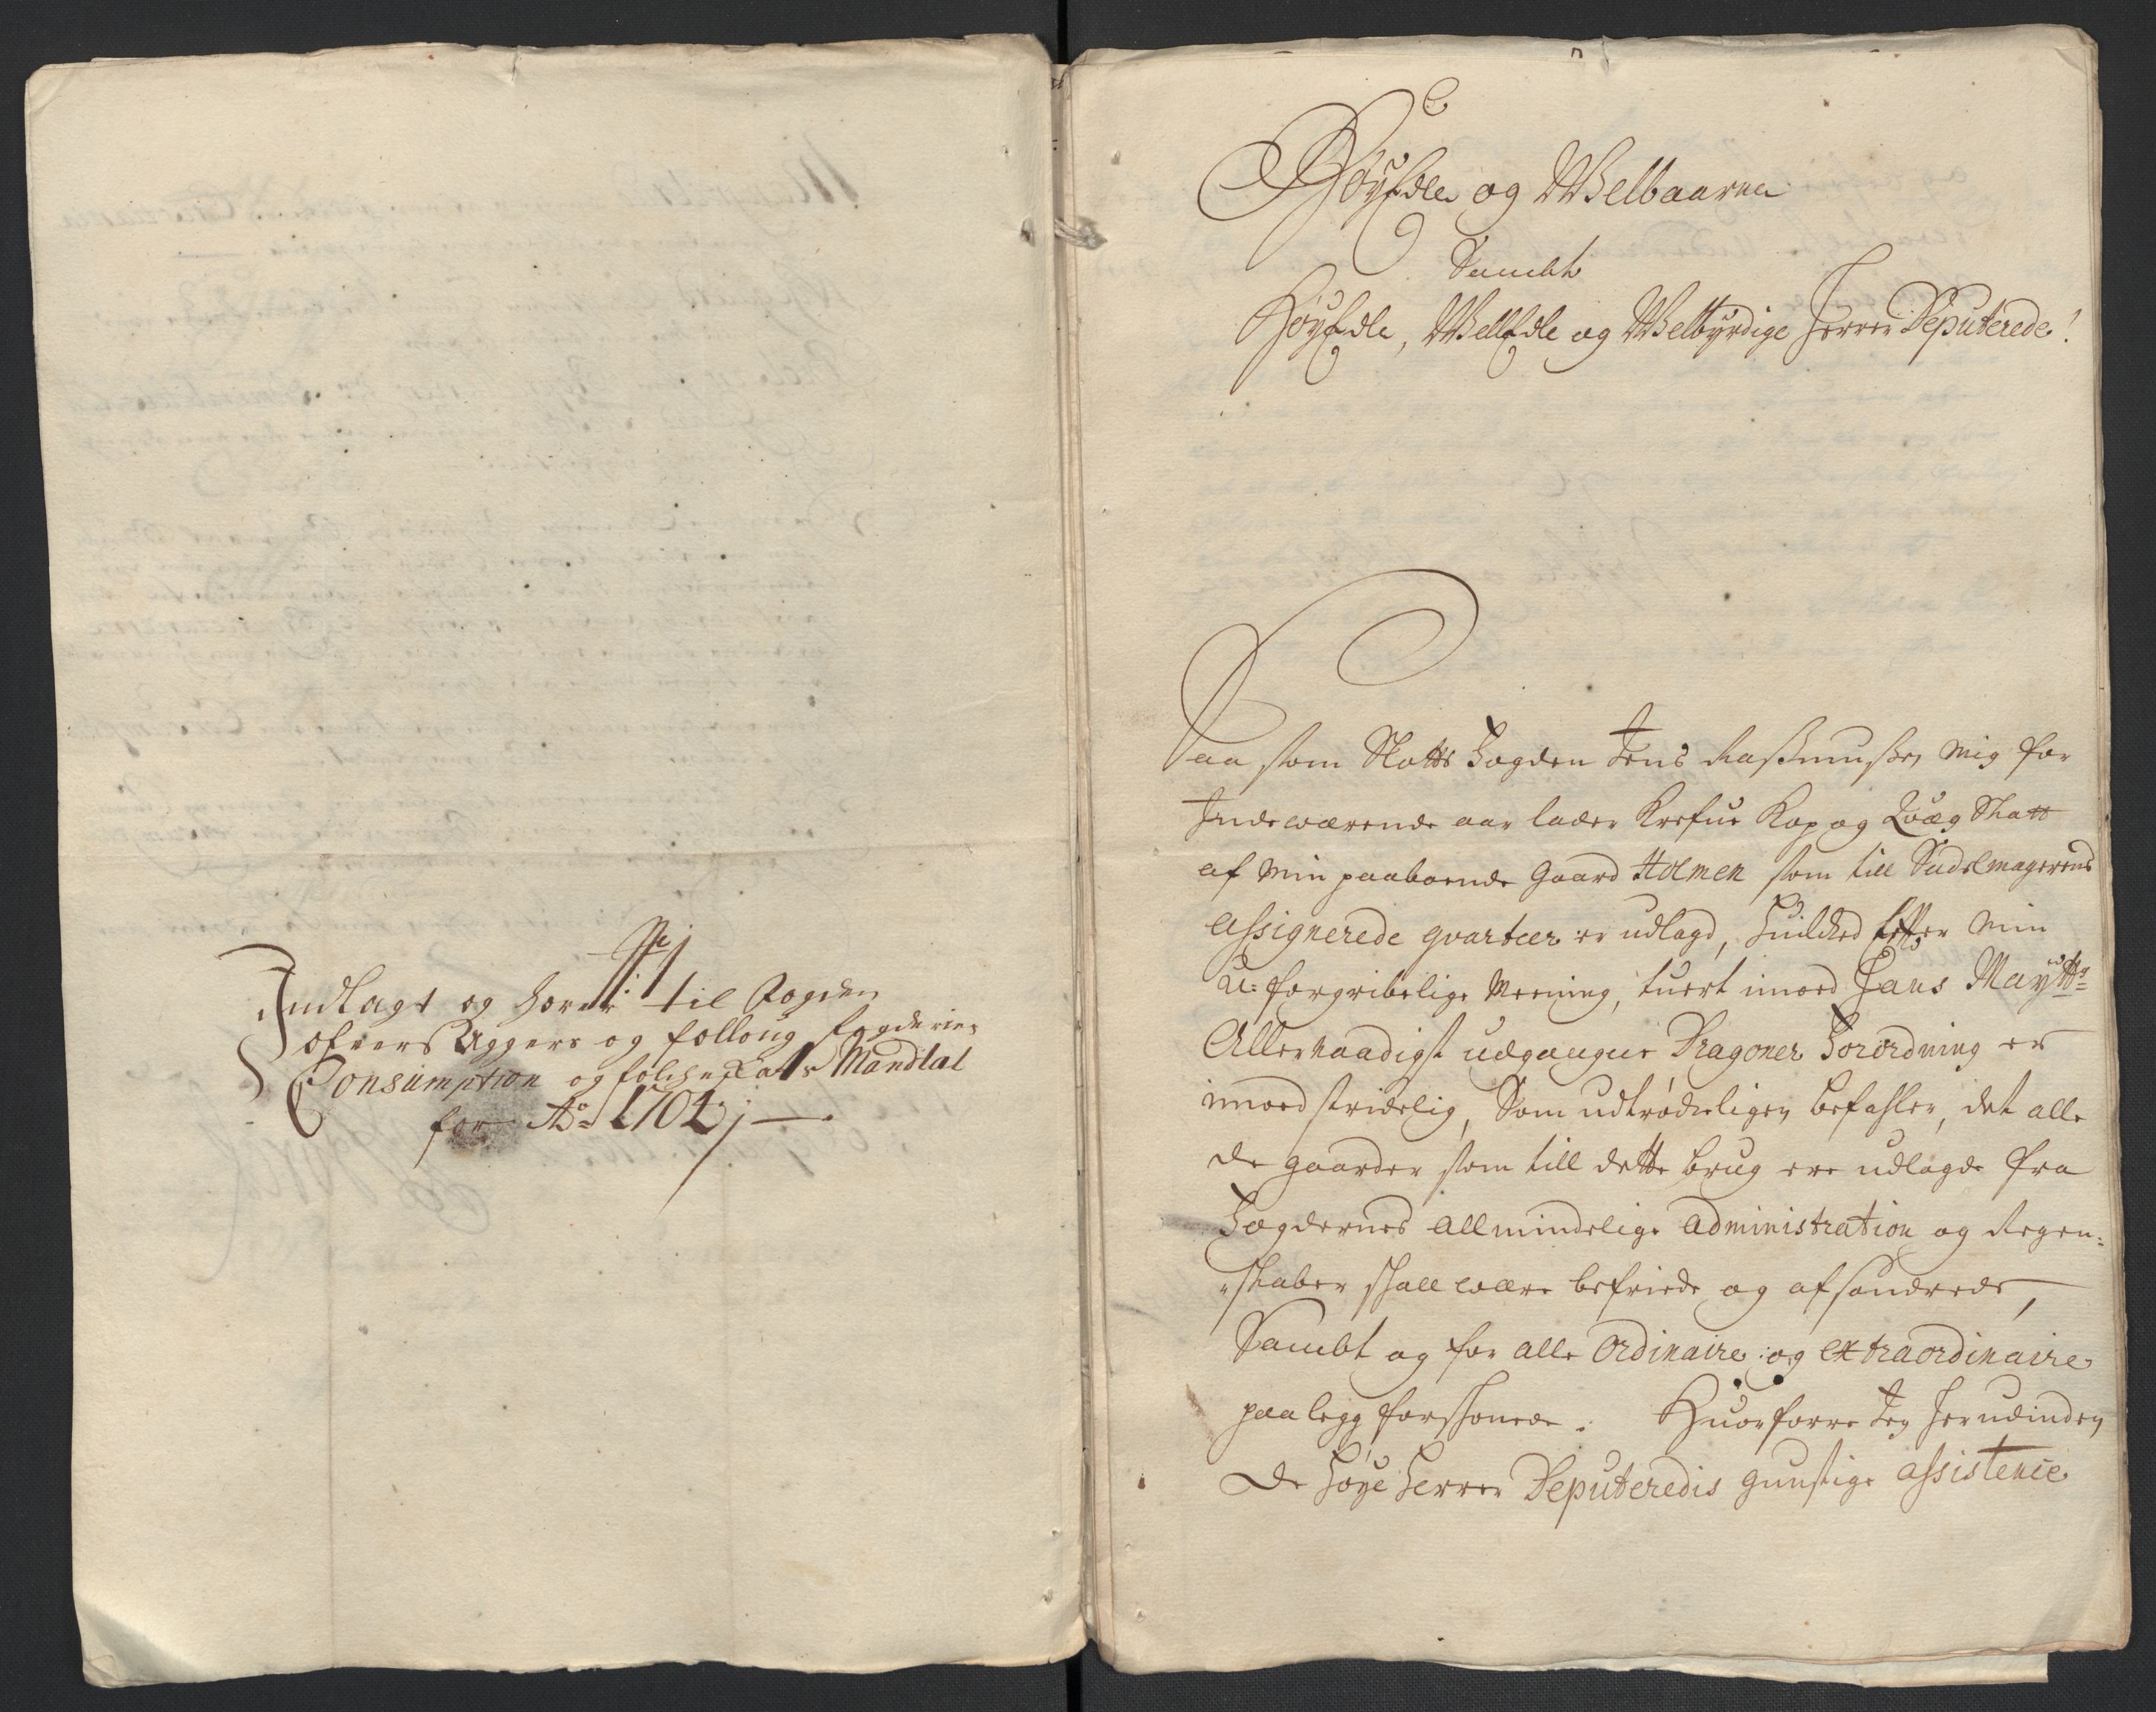 Indlagt og hører til Fogden
ofver Aggers og folloug fogderies
Consumption og folcheskats Mandtal
for Ao 1704
HøyEdle og Welbaarne
Sambt
HøyEdle, WellEdle og Welbyrdige Herrer Deputerede!
Saa som Slotts Fogden Jens Rasmussen mig for
Indeværende aar lader kræfue Kop og Qvæg Skatt
af min paaboende gaard Holmen som till Sadelmagerens
assignerede qvarteer er udlagd, huilched effter min
u-forgribelige Meening, tuert imod Hans Maytts
Allernaadigst udgangne Dragoner Forordning er
imoed stridelig, Som udtrøcheligen befahler, det alle
de gaarder som till dette brug ere udlagde fra
Fogdernes allmindelige administration og Regen-
skaber skall være befriede og afsondrede,
Sambt og for alle ordinaire og extraordinaire
paalegg forskonede. Huorforre Jeg herudinden
De høye Herrer Deputeredis gunstige assistence